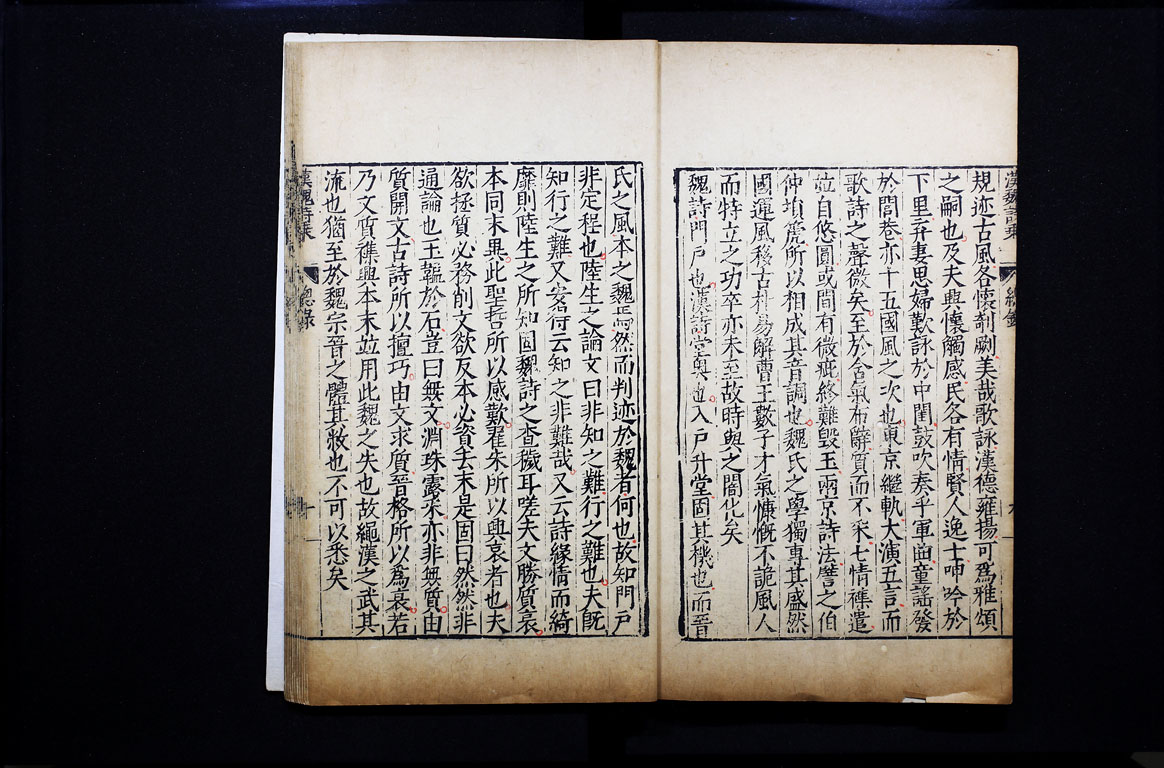 漢魏詩乘
總錄
九
規迹古風各懷剞劂美哉歌詠漢德雍揚可爲雅頌
之嗣也及夫興懷觸感民各有情賢人逸士呻吟於
下里弃妻思婦歎詠於中閨鼓吹奏乎軍曲童謠發
於閭巷亦十五國風之次也東京繼軌大演五言而
歌詩之聲微矣至於含氣布辭質而不采七情襍遣
竝自悠圓或間有微疵終難毀玉兩京詩法譬之伯
仲塤箎所以相成其音調也魏氏之學獨專其盛然
國運風移古朴易解曹王數子才氣慷慨不詭風人
而特立之功卒亦未至故時與之闇化矣
魏詩門戶也漢詩堂奧也入戶升堂固其機也而晉
氏之風本之魏焉然而判迹於魏者何也故知門戶
非定程也陸生之論文曰非知之難行之難也夫旣
知行之難又安得云知之非難哉又云詩緣情而綺
靡則陸生之所知固魏詩之查穢耳嗟夫文勝質衰
本同末異此聖哲所以感歎翟朱所以興哀者也夫
欲拯質必務削文欲反本必資去末是固曰然然非
通論也玉韞於石豈曰無文淵珠露采亦非無質由
質開文古詩所以擅巧由文求質晉格所以爲衰若
乃文質襍興本末竝用此魏之失也故繩漢之武其
流也猶至於魏宗晉之體其敝也不可以悉矣
漢魏詩乘
總錄
十